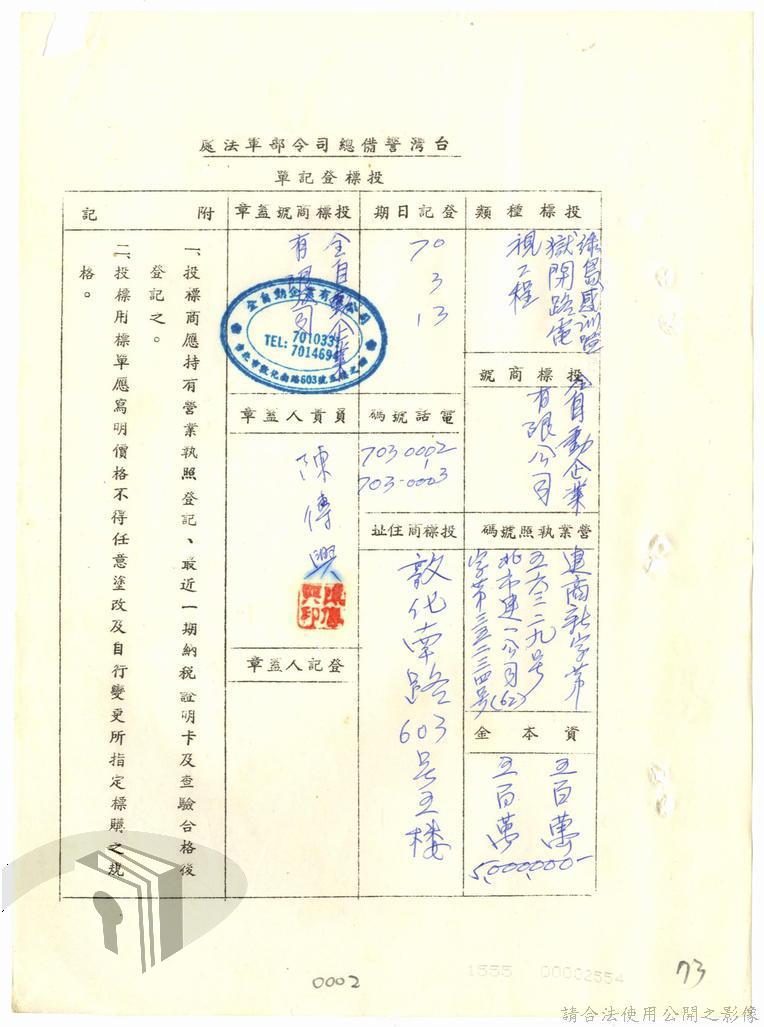 台灣警備總司令部軍法處
投標登記單
投標種類
綠島感訓監
獄閉路電
視工程
投標商號
全自動企業
有限公司
營業執照號碼
建商新字第
五六三二九号
北市建一公司(62)
字第三五二三四号
資本金
五百萬
五百萬
5,000,000-
登記日期
70
3
13
電話號碼
703 0002
703-0003
投標商住址
敦化南路603号五楼
投標商號蓋章
全自動企業
有限公司
全自動企業有限公司
TEL: 7010339
7014694
台北市敦化南路603號五樓之
負責人蓋章
陳傳興
陳傳
興印
登記人蓋章
附記
一、投標商應持有營業執照登記、最近一期納稅證明卡及查驗合格後
登記之。
二、投標用標單應寫明價格不得任意塗改及自行變更所指定標購之規
格。
0002
1555 00002554
73
請合法使用公開之影像